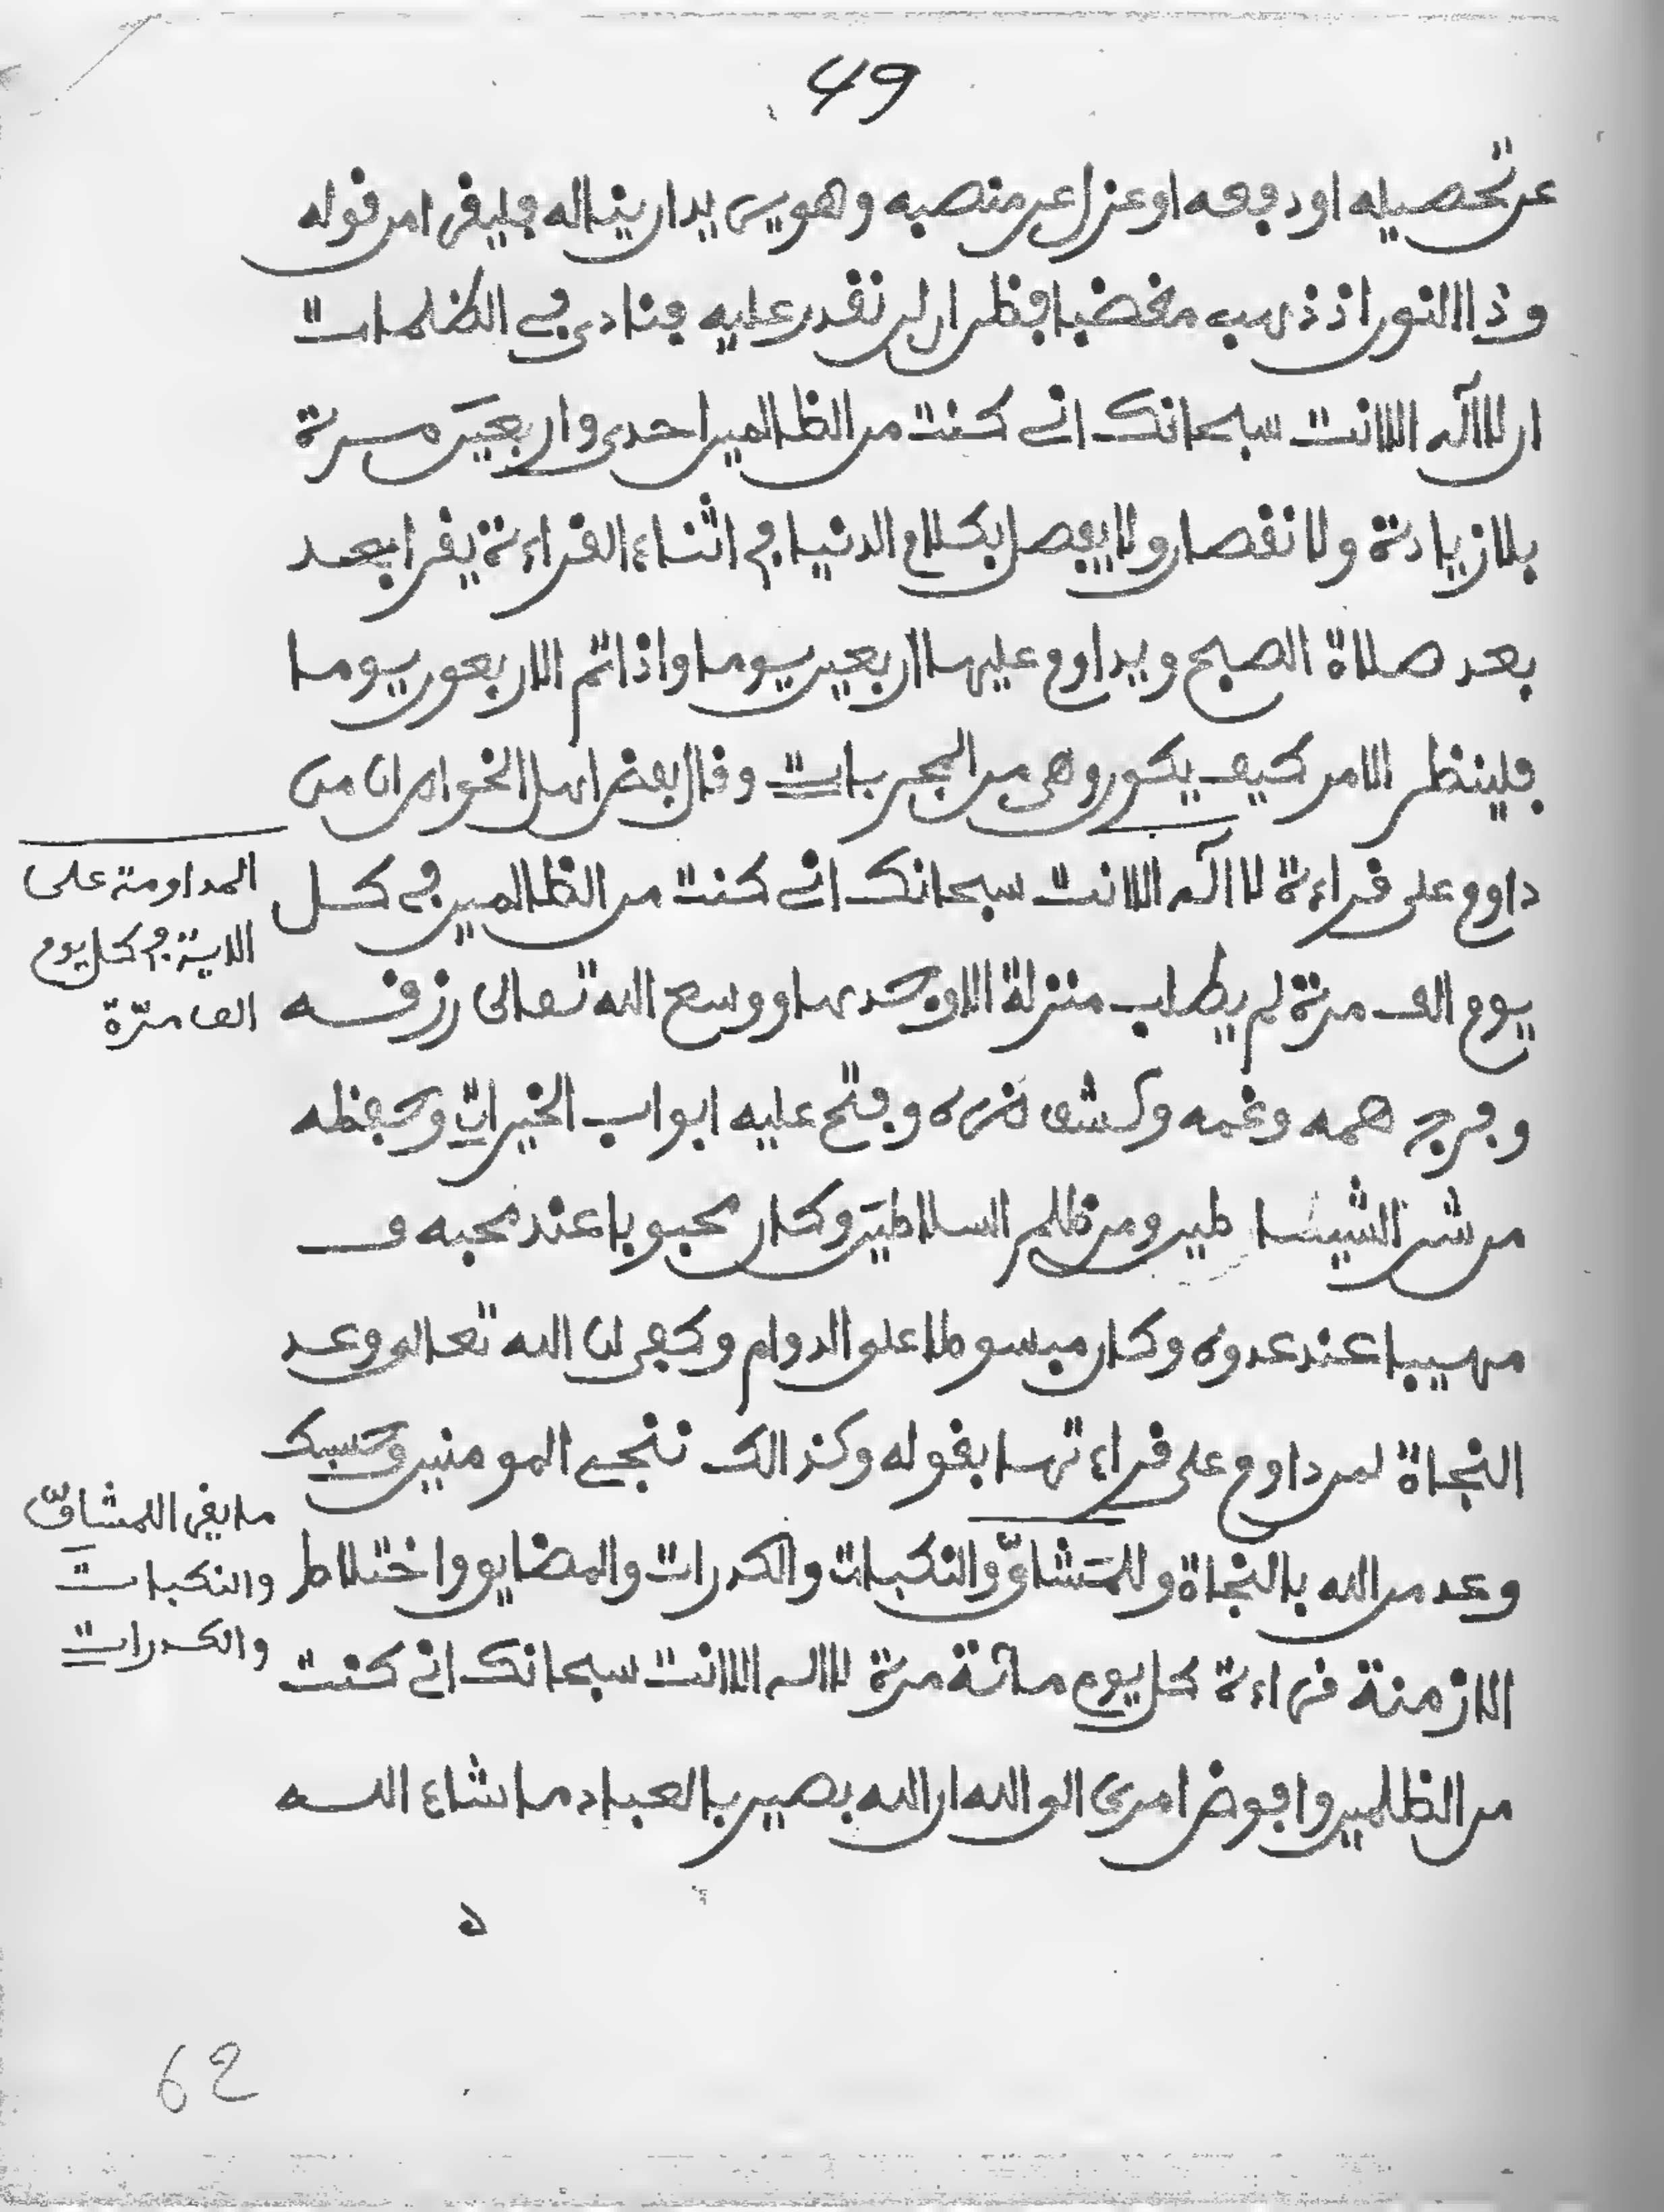 49
عن تحصيله او دفعه او عزل عن منصبه وهو يريد ان يناله فليقرا من قوله
وذا النون اذ ذهب مغضبا فظن ان لن نقدر عليه فنادى في الظلمات
ان لا اله الا انت سبحانك اني كنت من الظالمين احدى واربعين مرة
بلا زيادة ولا نقصان ولا يفصل بكلام الدنيا في اثناء القراءة يقرا بعد
بعد صلاة الصبح ويداوم عليها اربعين يوما واذا تم الاربعون يوما
فلينظر الامر كيف يكون وهي من المجربات وقال بعض اهل الخواص ان من
داوم على قراءة لا اله الا انت سبحانك اني كنت من الظالمين في كل
المداومة على
الاية في كل يوم
الف مرة
يوم الف مرة لم يطلب منزلة الا وجدها ووسع الله تعالى رزقه
وفرج همه وغمه وكشف ضره وفتح عليه ابواب الخيرات وحفظه
من شر الشيا طين ومن ظلم السلاطين وكان محبوبا عند محبه و
مهيبا عند عدوه وكان مبسوطا على الدوام وكفى ان الله تعالى وعد
النجاة لمن داوم على قراءتها بقوله وكذالك ننجي المومنين وحسبك
ما يقرا للمشاق
والنكبات
والكدرات
وعد من الله بالنجاة وللمشاق والنكبات والكدرات والمضايق واختلاط
الازمنة قراءة كل يوم مائة مرة لا اله الا انت سبحانك اني كنت
من الظلمين وافوض امري الى الله ان الله بصير بالعباد ما شاء الله
62